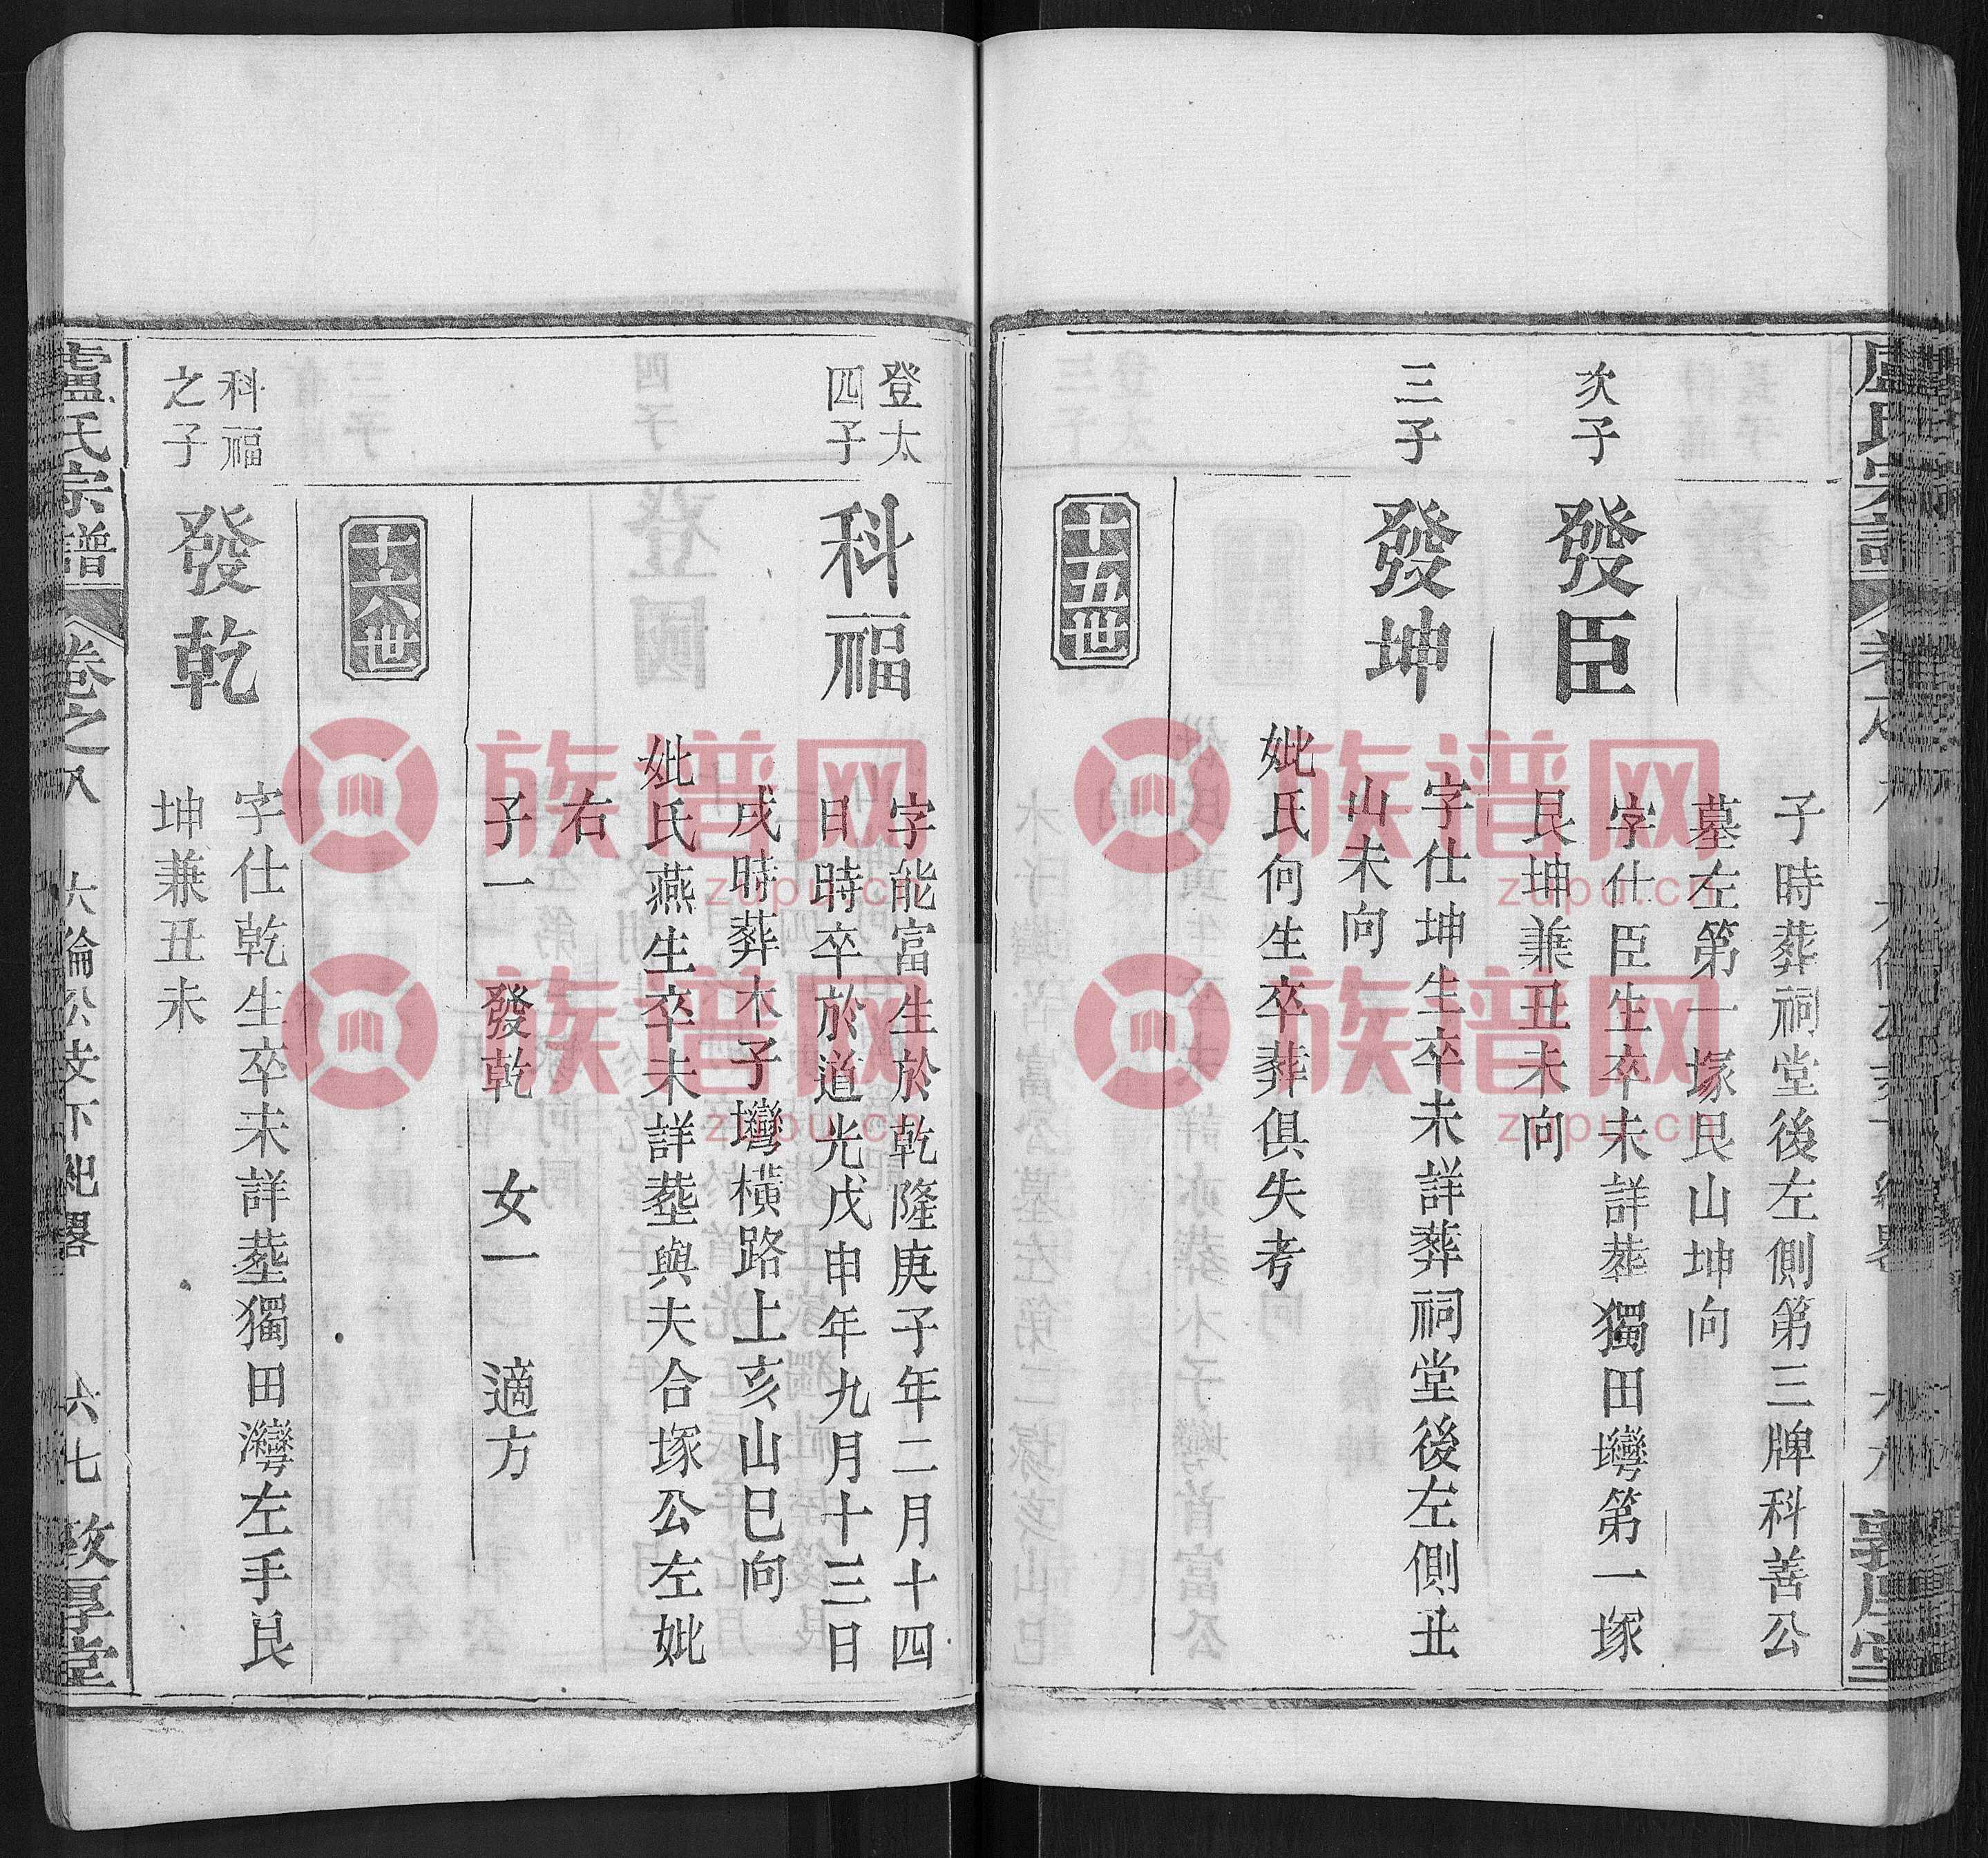 子時葬祠堂後左側第三牌科善公
墓左第一塚艮山坤向
次子
發臣
字仕臣生卒未詳葬獨田塆第一塚
艮坤兼丑未向
三子
發坤
字仕坤生卒未詳葬祠堂後左側丑
山未向
妣氏何生卒葬俱失考
十五世
登太
四子
科福
字能富生於乾隆庚子年二月十四
日時卒於道光戊申年九月十三日
戌時葬木子塆橫路上亥山巳向
妣氏燕生卒未詳塟與夫合塚公左妣
右
子一 發乾 女一 適方
十六世
科福
之子
發乾
字仕乾生卒未詳塟獨田灣左手艮
坤兼丑未
盧氏宗譜 卷之八 大倫公支下紀畧 六七 敦厚堂
族谱网
zupu.cn
族谱网
zupu.cn
族谱网
zupu.cn
族谱网
zupu.cn